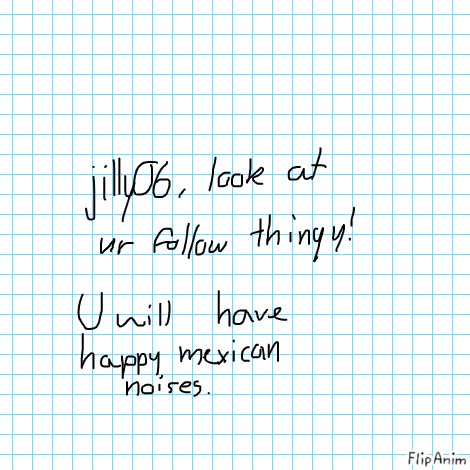 jilly06, look at
ur follow thingy!
U will have
happy mexican
noises.
FlipAnim